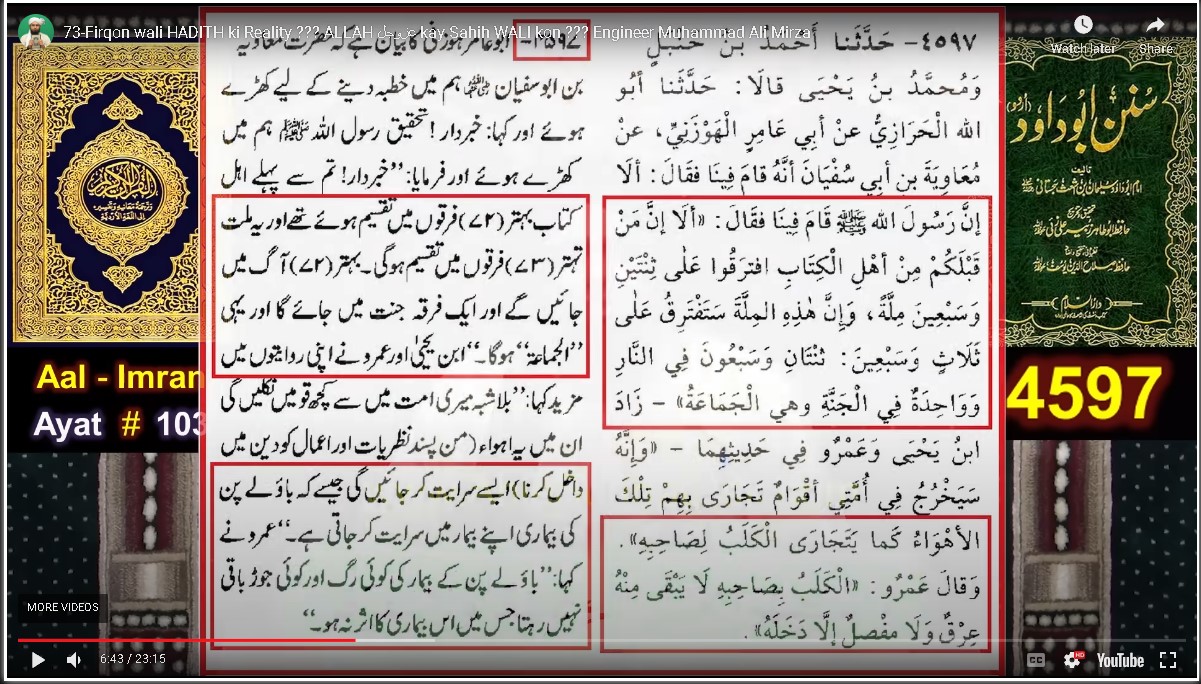 73-Firqon wali HADITH ki Reality ??? ALLAH عزوجل kay Sahih WALI kon ??? Engineer Muhammad Ali Mirza
Watch later
Share
٤٥٩٧- حَدَّثَنا أَحْمَدُ بنُ حَنْبَلٍ
وَمُحَمَّدُ بنُ يَحْيَى قالَا: حَدَّثَنا أبُو
الله الْحَرَازِيُّ عنْ أبي عَامِرٍ الْهَوْزَنِيِّ، عنْ
مُعَاوِيَةَ بنِ أبي سُفْيَانَ أنَّهُ قامَ فِينَا فقَالَ: ألَا
إنَّ رَسُولَ الله ﷺ قَامَ فِينَا فقَالَ: «ألَا إنَّ مَنْ
قَبْلَكُمْ مِنْ أهْلِ الْكِتَابِ افتَرَقُوا عَلَى ثِنْتَيْنِ
وَسَبْعِينَ مِلَّةً، وَإنَّ هٰذِهِ المِلَّةَ سَتَفْتَرِقُ عَلَى
ثَلَاثٍ وَسَبْعِينَ: ثِنْتَانِ وَسَبْعُونَ فِي النَّارِ
وَوَاحِدَةٌ فِي الْجَنَّةِ وهي الْجَمَاعَةُ» - زَادَ
ابنُ يَحْيَى وَعَمْرٌو فِي حَدِيثِهِمَا - «وَإنَّهُ
سَيَخْرُجُ فِي أُمَّتِي أقْوَامٌ تَجَارَى بِهِمْ تِلْكَ
الأهْوَاءُ كَما يَتَجَارَى الْكَلَبُ لِصَاحِبِهِ».
وَقالَ عَمْرٌو: «الْكَلَبُ بِصَاحِبِهِ لَا يَبْقَى مِنْهُ
عِرْقٌ وَلَا مفْصِلٌ إلَّا دَخَلَهُ».
۴۵۹۷- ابوعامر ہوزنی کا بیان ہے کہ حضرت معاویہ
بن ابوسفیان رضی اللہ عنہ ہم میں خطبہ دینے کے لیے کھڑے
ہوئے اور کہا: خبردار! تحقیق رسول اللہ ﷺ ہم میں
کھڑے ہوئے اور فرمایا: ’’خبردار! تم سے پہلے اہل
کتاب بہتر (۷۲) فرقوں میں تقسیم ہوئے تھے اور یہ ملت
تہتر (۷۳) فرقوں میں تقسیم ہوگی۔ بہتر (۷۲) آگ میں
جائیں گے اور ایک فرقہ جنت میں جائے گا اور یہی
’’الجماعۃ‘‘ ہوگا۔‘‘ ابن یحییٰ اور عمرو نے اپنی روایتوں میں
مزید کہا: ’’بلاشبہ میری امت میں سے کچھ قومیں نکلیں گی
ان میں یہ اہواء (من پسند نظریات اور اعمال کو دین میں
داخل کرنا) ایسے سرایت کر جائیں گی جیسے کہ باؤلے پن
کی بیماری اپنے بیمار میں سرایت کر جاتی ہے۔‘‘ عمرو نے
کہا: ’’باؤلے پن کے بیمار کی کوئی رگ اور کوئی جوڑ باقی
نہیں رہتا جس میں اس بیماری کا اثر نہ ہو۔‘‘
سنن ابوداود
(اردو)
تالیف
دارالسلام
Aal - Imran
Ayat # 103
4597
MORE VIDEOS
6:43 / 23:15
CC
HD
YouTube